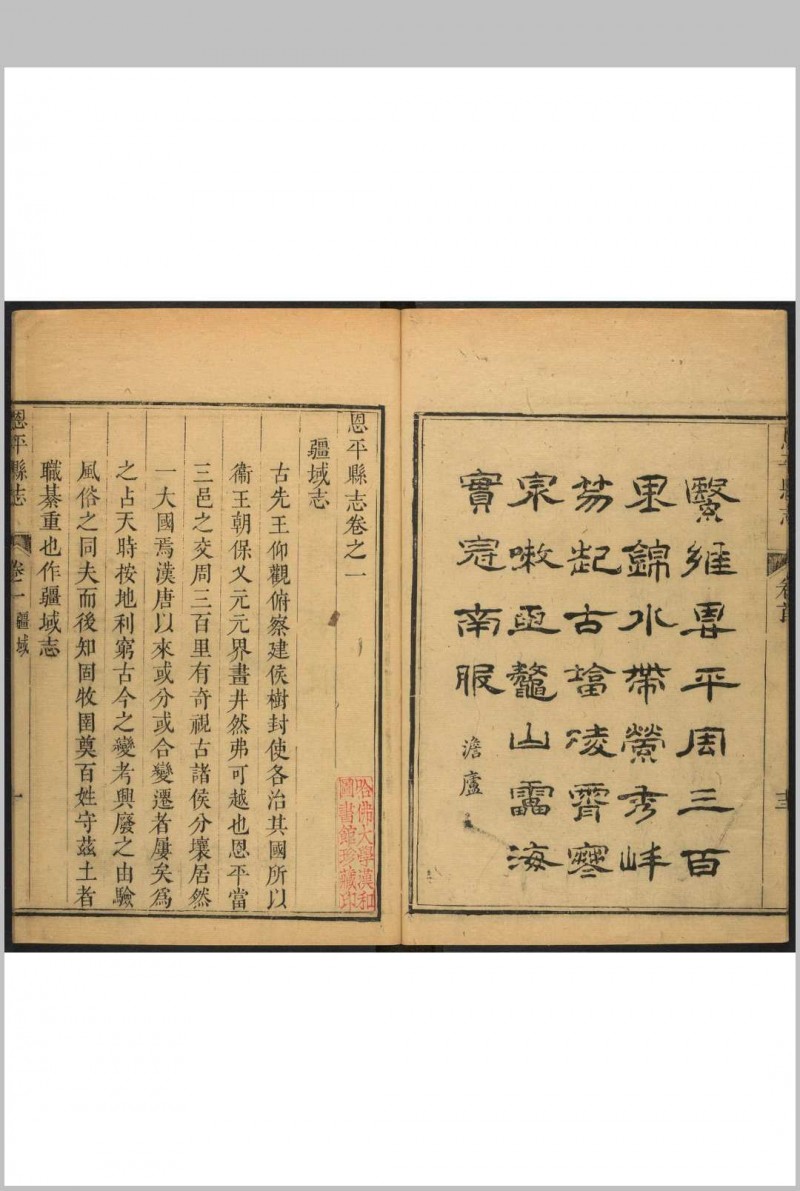 恩平縣志
卷首
繄維恩平周三百
里錦水帶縈秀峰
笏起古墻凌霄寒
泉噉
鼇山
海
實冠南服
澹廬
恩平縣志卷之一
疆域志
古先王仰觀俯察建侯樹封使各治其國所以
衞王朝保乂元元界畫井然弗可越也恩平當
三邑之交周三百里有奇視古諸侯分壤居然
一大國焉漢唐以來或分或合變遷者屢矣爲
之占天時按地利窮古今之變考興廢之由驗
風俗之同夫而後知固牧圉奠百姓守茲土者
職綦重也作疆域志
哈佛大學漢和
圖書館珍藏印
恩平縣志
卷一
疆域
一